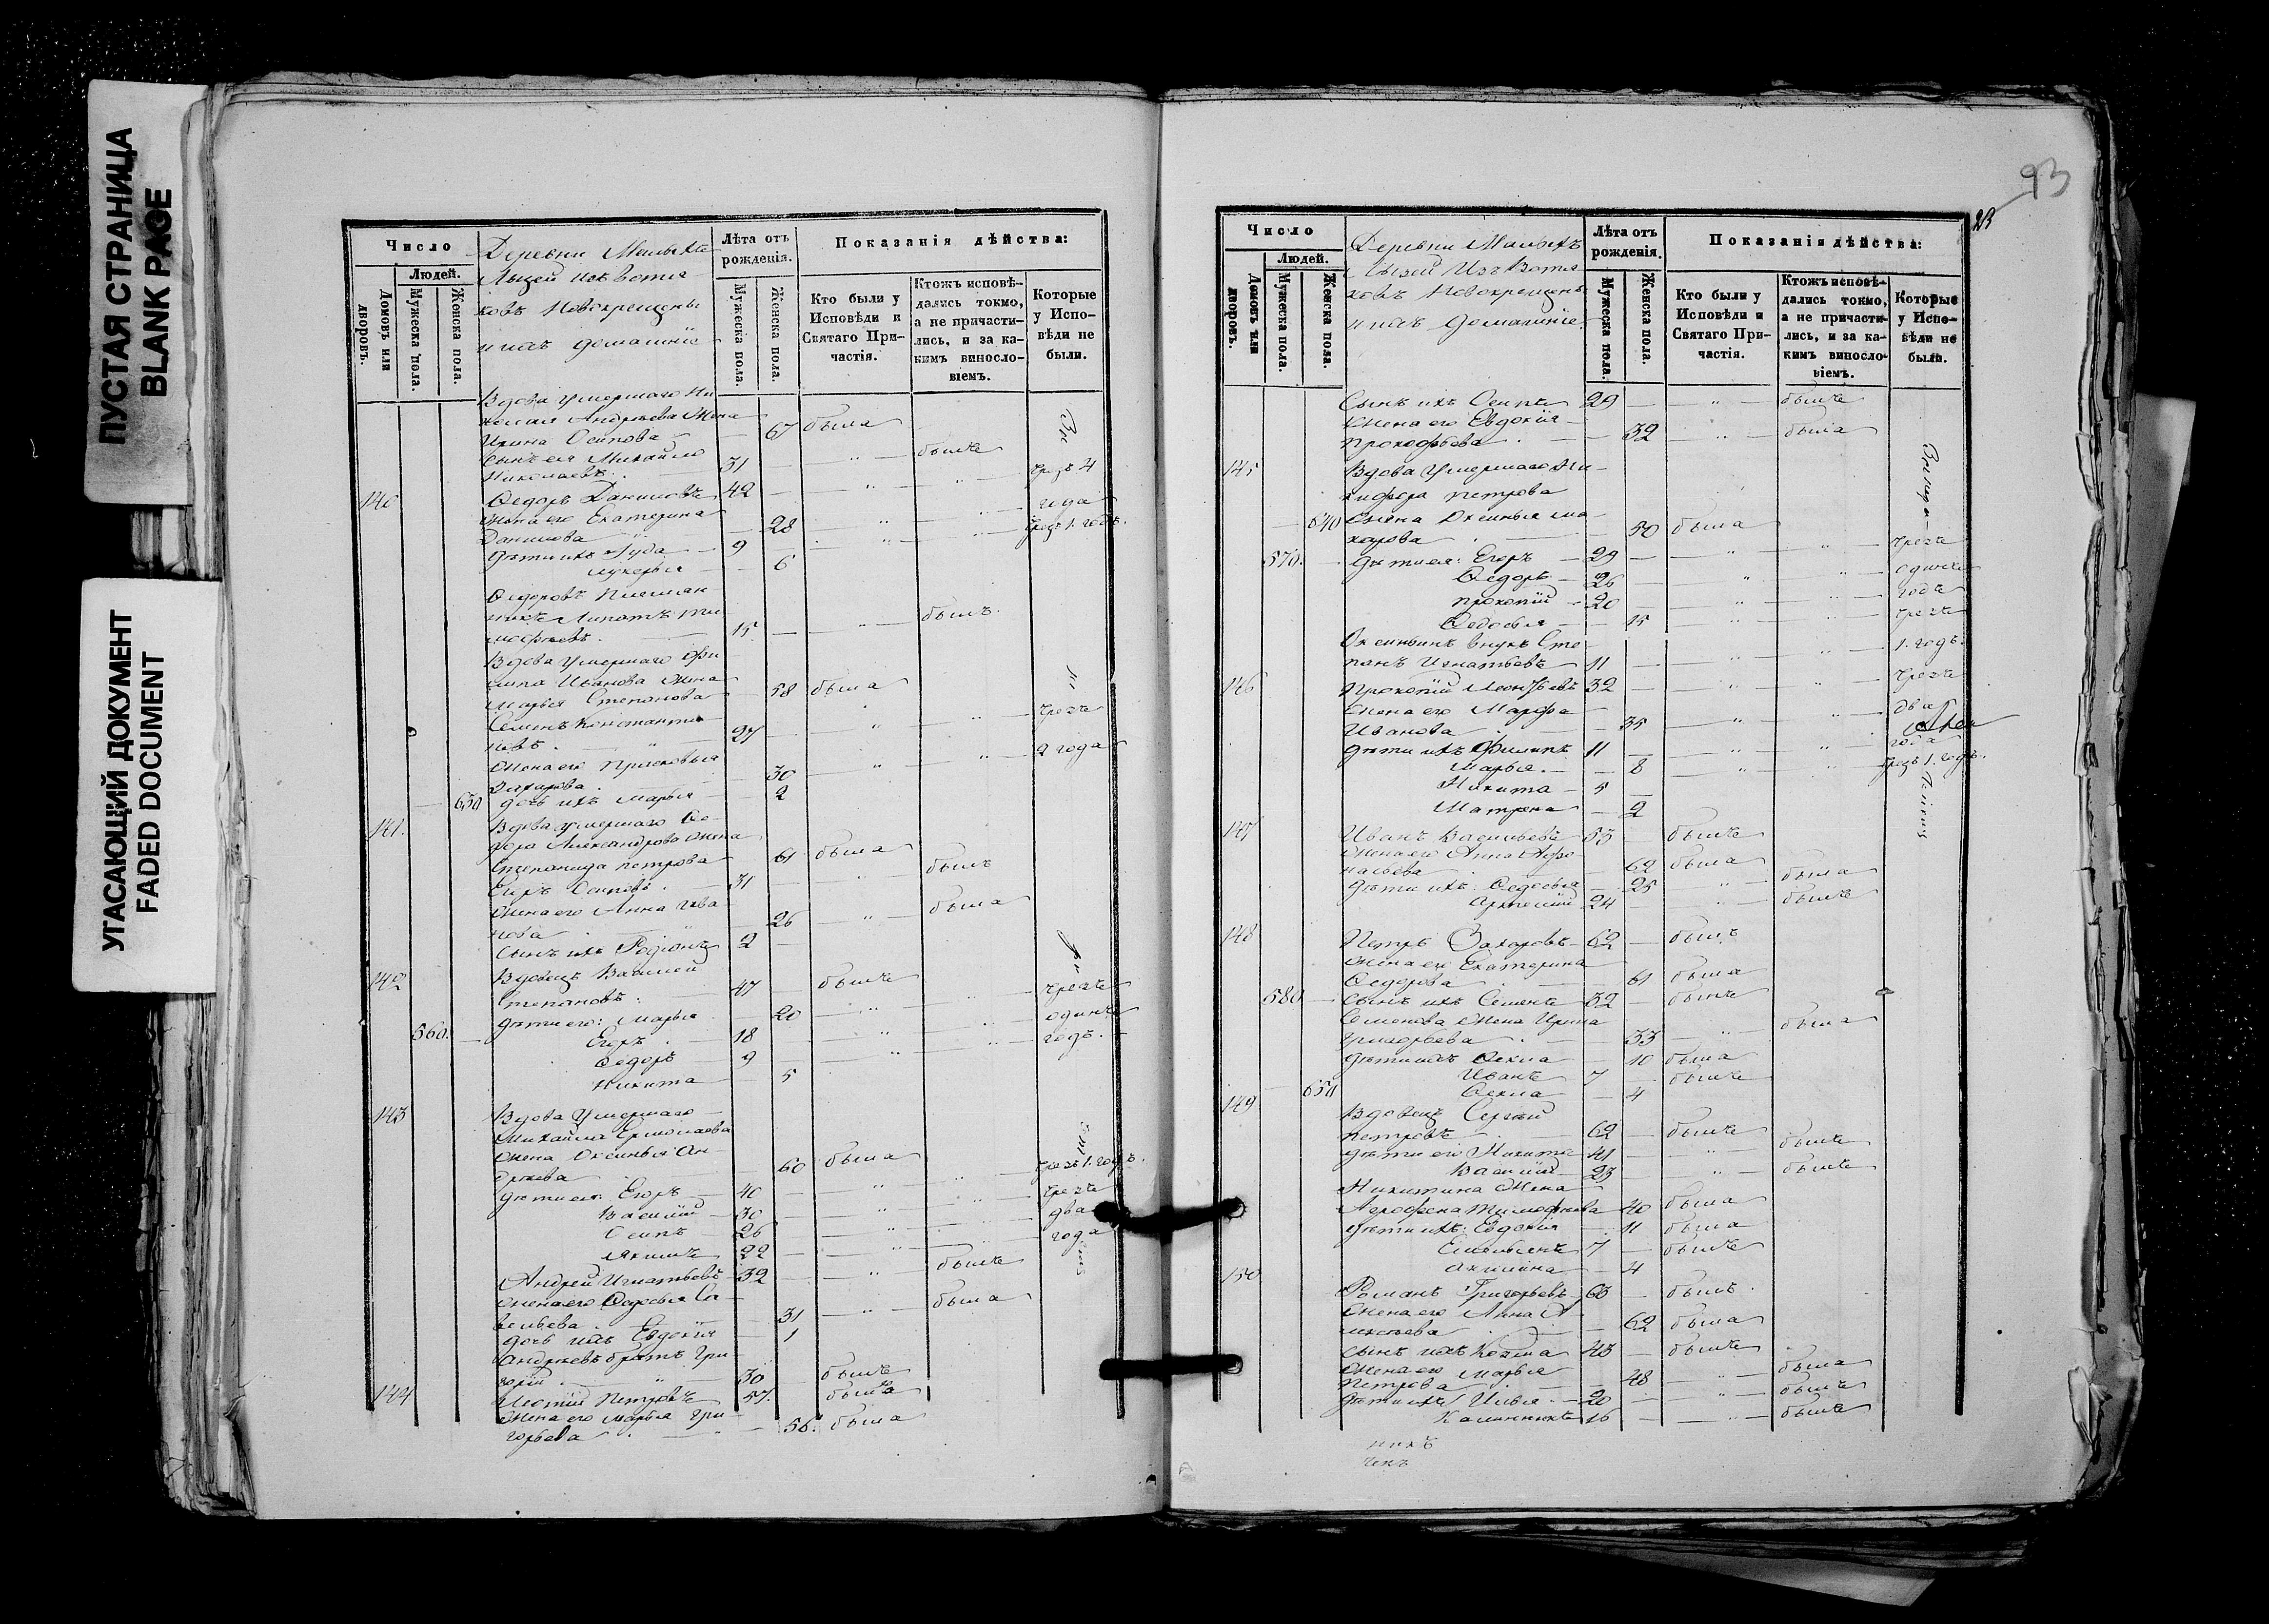 ПУСТАЯ СТРАНИЦА
BLANK PAGE
УГАСАЮЩИЙ ДОКУМЕНТ
FADED DOCUMENT
Число
Людей.
Домовъ или дворовъ.
Мужеска пола.
Женска пола.
Деревни
новъ Новокрещены
и ихъ домашніе
Лѣта отъ рожденія.
Мужеска пола.
Женска пола.
Показанія дѣйства:
Кто были у Исповѣди и Святаго Причастія.
Ктожъ исповѣдались токмо, а не причастились, и за какимъ винословіемъ.
Которые у Исповѣди не были.
Вдова умершаго Ни-
колая Андреева жена
Ирина Осипова — 67 была
Сынъ ея Михайло
Николаевъ. 31 — " былъ
140 Ѳедоръ Даниловъ 42 — " " чрезъ 4 года
Жена его Екатерина
Данилова — 28 " " чрезъ 1. годъ.
Дѣти ихъ Іуда 9
Лукерья — 6
Ѳедоровъ
Ти-
моѳеевъ. 15 — " былъ.
Вдова умершаго Фи-
липа Иванова жена
Марья Степанова — 58 была
Семенъ Константи-
новъ. 27 — " " чрезъ
2 года
Жена его Прасковья
30 " "
650 дочь ихъ Марья — 2
141. Вдова умершаго Ѳе-
дора Александрова жена
Степанида Петрова — 61 была
Егоръ Осиповъ. 31 — " былъ
Жена его Анна Ива-
нова — 26 " была
Сынъ ихъ Родіонъ 2 —
142 Вдовецъ Василей
Степановъ: 47 былъ
Дѣти его: Марья — 20 " " чрезъ
560. Егоръ 18 — " " одинъ
Ѳедоръ 9 — " " годъ.
Никита — 5
143 Вдова Умершаго
Михайла Ермолаева
жена Оксинья Ан-
дреева — 60 была
Дѣти ея: Егоръ 40 — " " чрезъ 1. годъ.
Василій 30 " чрезъ
Осипъ 26 " два
Якимъ 22 — " года
Андрей Игнатьевъ 32 — " былъ
жена его Ѳедосья Са-
вельева. 31 " была
дочь ихъ Евдокія — 1
Андреевъ братъ Гри-
горій 30 былъ
144 Петровъ 57. былъ
Жена его Марья Гри-
горьева — 56. была
93
Число
Людей.
Домовъ или дворовъ.
Мужеска пола.
Женска пола.
Деревни
ковъ Новокрещены
и ихъ домашніе.
Лѣта отъ рожденія.
Мужеска пола.
Женска пола.
Показанія дѣйства:
Кто были у Исповѣди и Святаго Причастія.
Ктожъ исповѣдались токмо, а не причастились, и за какимъ винословіемъ.
Которые у Исповѣди не были.
Сынъ ихъ Осипъ 29 — " былъ
Жена его Евдокія
Прокофьева — 32 " была
145 Вдова Умершаго Ни-
кифора Петрова
640 жена Оксинья Ма-
карова 50 была
570. Дѣти ея: Егоръ 29 — " " чрезъ
Ѳедоръ 26 — " " одинъ
Прокопій 20 — " " годъ
Ѳедосья — 15 " " чрезъ
Оксиньинъ внукъ Сте-
панъ Игнатьевъ 11 — " " 1. годъ.
146 Прокопій Леонтьевъ 32 — " " чрезъ
Жена его Марфа два
Иванова — 35 " " года
Дѣти ихъ Филипъ 11 — " "
Марья. — 8 " " чрезъ 1. годъ.
Никита 5 —
Матрена — 2
147 Иванъ Васильевъ 53 — былъ
Жена его Анна Афо-
насьева 62 была
Дѣти ихъ: Ѳедосья — 25 " была
24 — " былъ
148 Петръ Захаровъ 62 — былъ
Жена его Екатерина
Ѳедорова 61 была
580 Сынъ ихъ Семенъ 32 — былъ
Семенова жена Ирина
Григорьева — 33 " была
Дѣти ихъ Ѳекла — 10 была
Иванъ 7 — былъ
650 Ѳекла — 4
149 Вдовецъ Сергѣй
Петровъ 62 — былъ
Дѣти его Никита 41 — " былъ
Василій 23 — " былъ
Никитина жена
Агрофена Тимофеева 40 была
Дѣти ихъ: Евдокія — 11 была
Емельянъ 7 — былъ
Акилина — 4
150 Романъ Григорьевъ 63 — былъ.
Жена его Анна А-
лексѣева — 62 была
Сынъ ихъ Козма 43 — былъ
Жена его Марья
Петрова — 48 " была
Дѣти ихъ Илья 20 — " былъ
Калинникъ 16 — " былъ